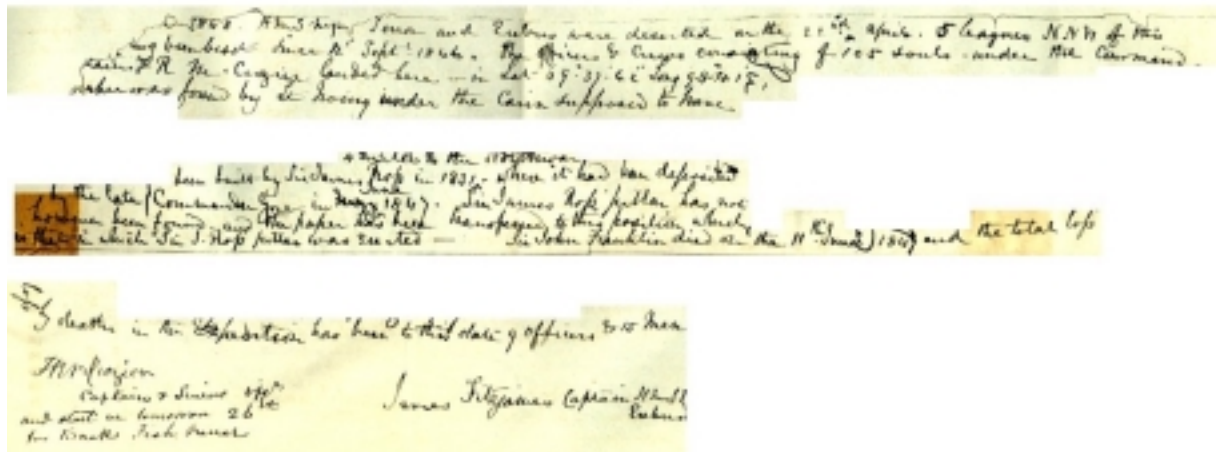 1848. H M S hips Terror and Erebus were deserted on the 22nd April. 5 leagues NNW of this
been beset since 12th Septr 1846. The Officers & Crews consisting of 105 souls under the Command
F R M. Crozier landed here — in Lat. 69° 37' 42" Long 98° 41'
paper was found by Lt Irving under the Cairn supposed to have
4 miles to the Northward
been built by Sir James Ross in 1831 – where it had been deposited
by the late Commander Gore in May June 1847. Sir James Ross' pillar has not
however been found, and the paper has been transferred to this position which
is that in which Sir J. Ross pillar was erected — Sir John Franklin died on the 11th June 1847 and the total loss
by deaths in the Expedition has been to this date 9 officers & 15 Men
James Fitzjames Captain HMS
Erebus
F R M Crozier
Captain & Senior Offr
and start on tomorrow 26th
for Backs Fish River